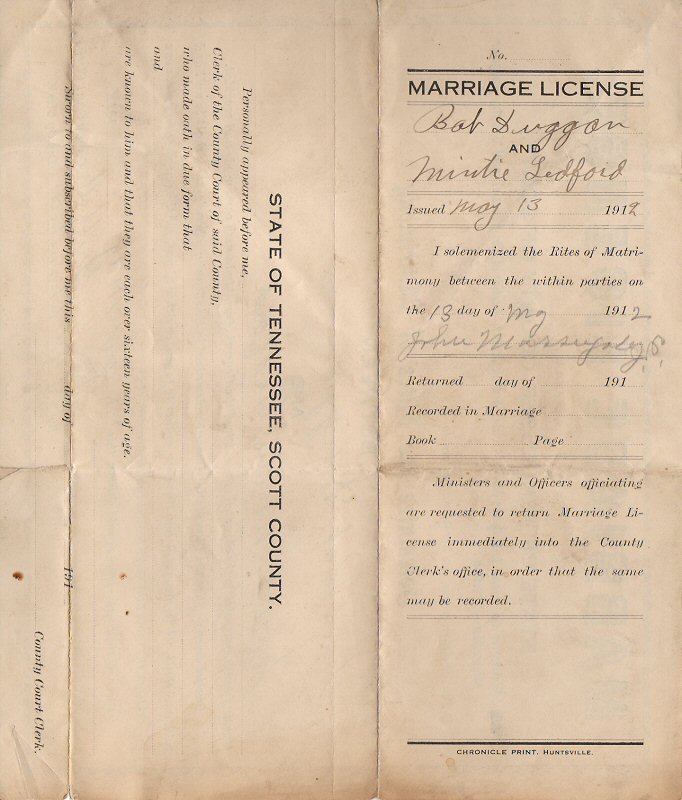 No.
MARRIAGE LICENSE
Bob Duggan
AND
Mintie Ledford
Issued May 13 1912
I solemenized the Rites of Matri-
mony between the within parties on
the 13 day of May 1912
John
Returned day of 191
Recorded in Marriage
Book Page
Ministers and Officers officiating
are requested to return Marriage Li-
cense immediately into the County
Clerk's office, in order that the same
may be recorded.
CHRONICLE PRINT, HUNTSVILLE.
STATE OF TENNESSEE, SCOTT COUNTY.
Personally appeared before me,
Clerk of the County Court of said County,
who made oath in due form that
and
are known to him and that they are each over sixteen years of age.
Sworn to and subscribed before me this day of 191
County Court Clerk.